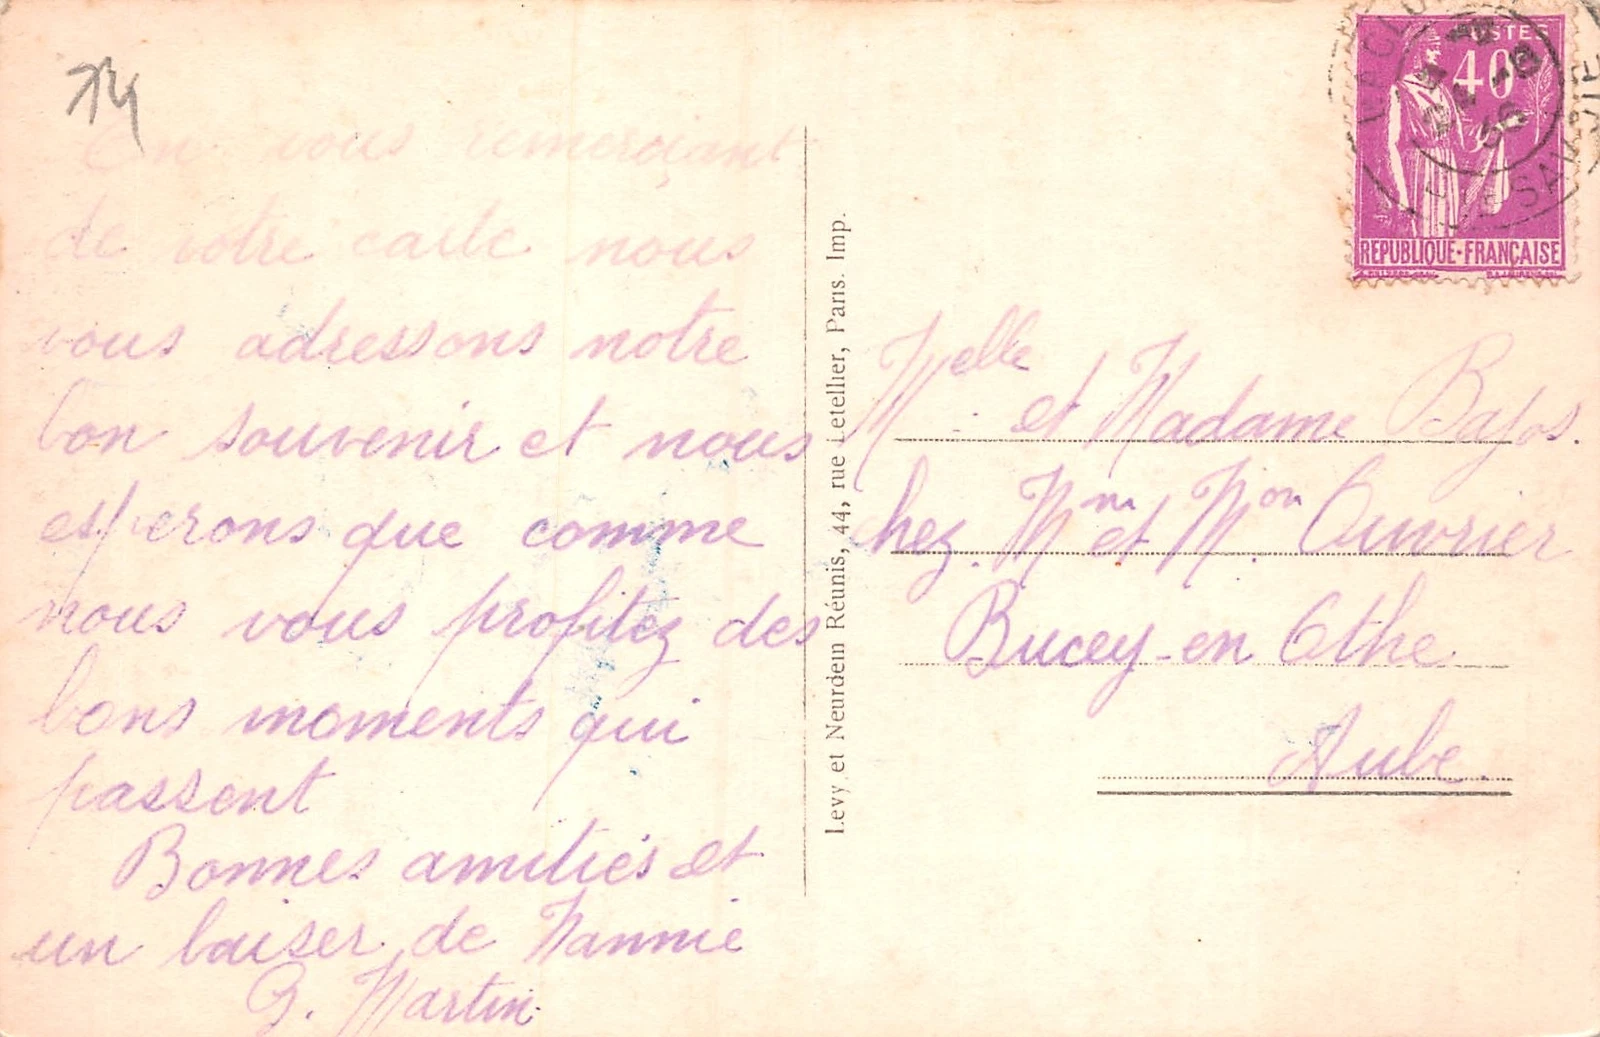 74
En vous remerciant
de votre carte nous
vous adressons notre
bon souvenir et nous
esperons que comme
nous vous profitez des
bons moments qui
passent
Bonnes amitiés et
un baiser de Nannie
G. Martin
Levy et Neurdein Réunis, 44, rue Letellier, Paris. Imp.
POSTES
40c
REPUBLIQUE-FRANÇAISE
SAVOIE
Melle et Madame Bajos.
chez Mr et Mon Ouvrier
Bucey-en Othe
Aube.